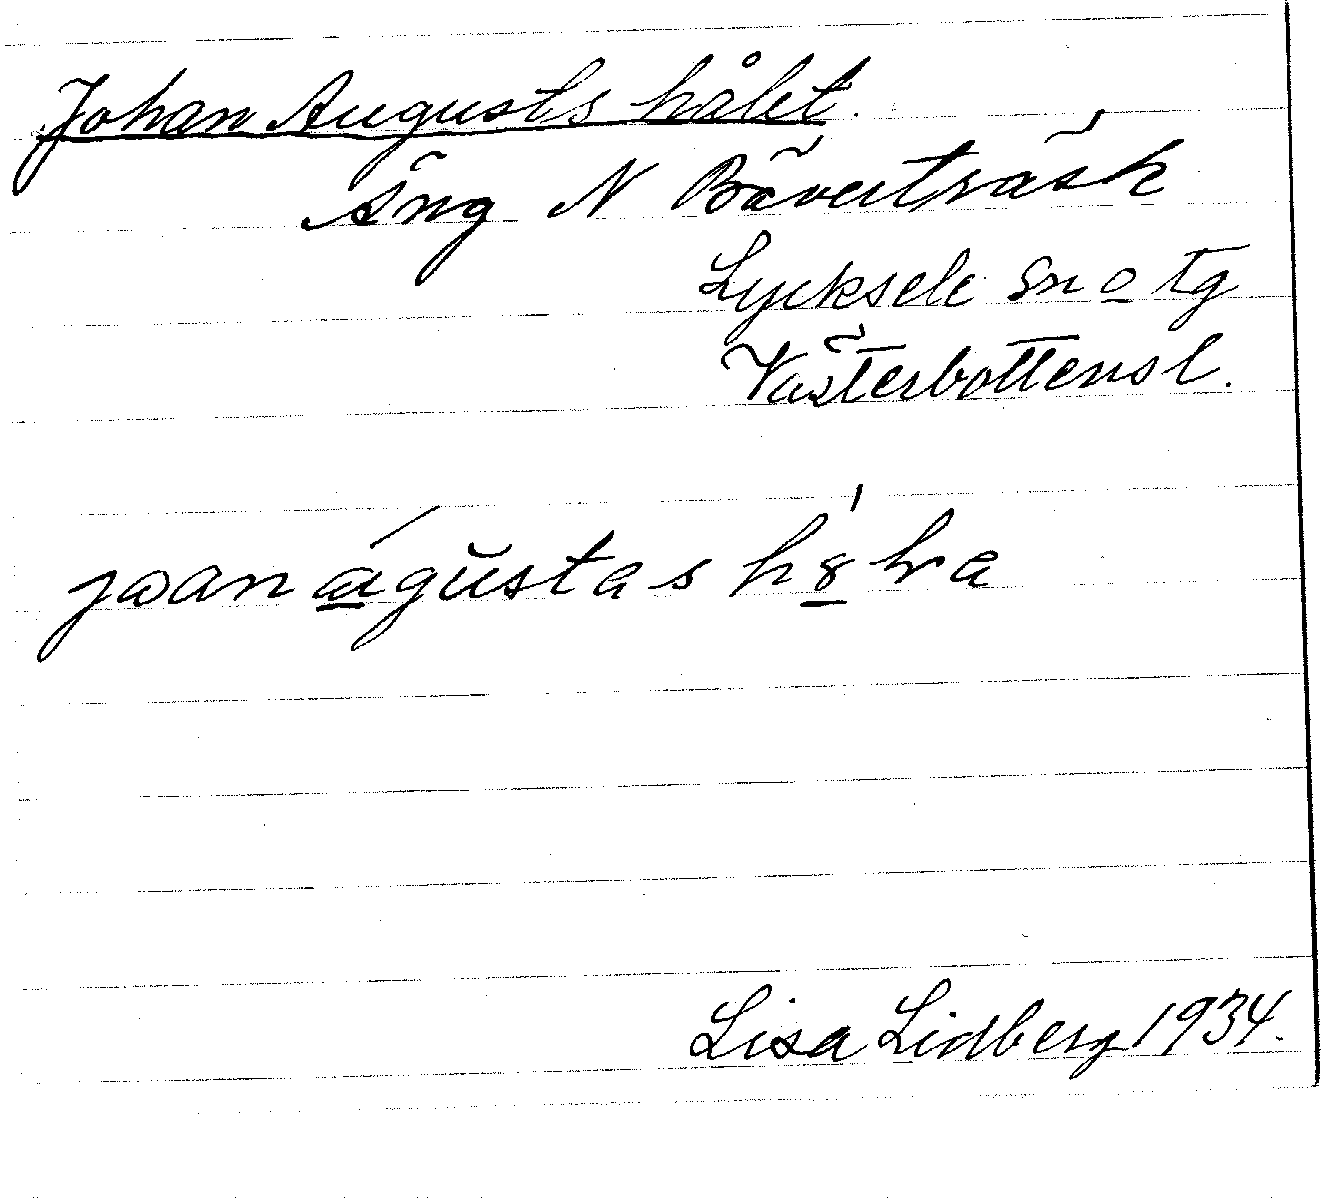 Johan Augusts hålet.
Äng N Bäverträsk
Lycksele sn o tg
Västerbottensl.
Lisa Lidberg 1934.